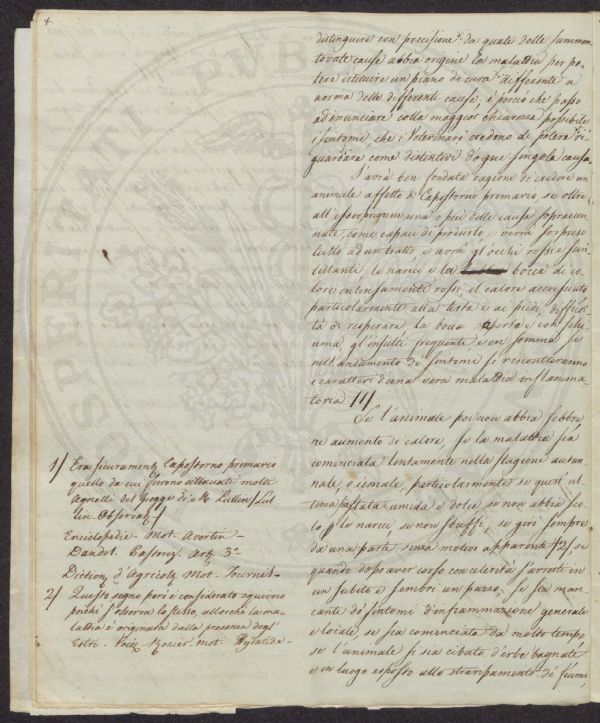 4
distinguere con precisione da quale delle summen-
tovate cause abbia origine la malattia per po-
tere istituire un piano di cura differente a
norma delle differenti cause, è perciò che passo
ad enunciare colla maggior chiarezza possibile
i sintomi, che i Veterinari credono di potere ri-
guardare come distintivi d'ogni singola causa.
S'avrà ben fondata ragione di credere un
animale affetto da Capostorno primario, se oltre
all'esser una o più delle cause sopraenun-
ciate, come capaci di produrlo, verrà sorpreso
tutto ad un tratto e avrà gl'occhi rossi e scin-
tillanti, le narici e la bocca di co-
lore intensamente rossi il calore accresciuto
particolarmente alla testa e ai piedi, difficol-
tà di respirare la bocca aperta e con schi-
uma gl'insulti frequenti e in somma se
nell'andamento de' sintomi si riscontreranno
i caratteri d'una vera malattia inflamma-
toria /1/
Se l'animale poi non abbia febbre
ne aumento di calore, se la malattia sia
cominciata lentamente nella stagione autun-
nale, o iemale, particolarmente se quest'ul-
tima sia stata umida e dolce, se non abbia sco-
lo le narici, se non sbuffi, se giri sempre
da una parte senza motivo apparente /2/ se
quando dopo aver corso con celerità s'arresti in
un subito e sembri un pazzo, se sia man-
cante de' sintomi d'infiammazione generale
e locale, se sia cominciata da molto tempo
se l'animale si sia cibato d'erbe bagnate
e in luogo esposto allo straripamento de' fiumi,
1/ Era sicuramente Capostorno primario
quello da cui furono attaccati molti
Agnelli del gregge di Mr. Lullin /Lul-
lin Observat./
Enciclopedie - Mot. Avertin -
Dandol. Art. 3º
Diction. d'Agricolt. Mot. Tournis -
2/ Questo segno però è considerato equivoco
poichè s'osserva lo stesso, allorchè la ma-
lattia è originata dalla presenza degl'
Estri. Rozier mot. Hydatide -